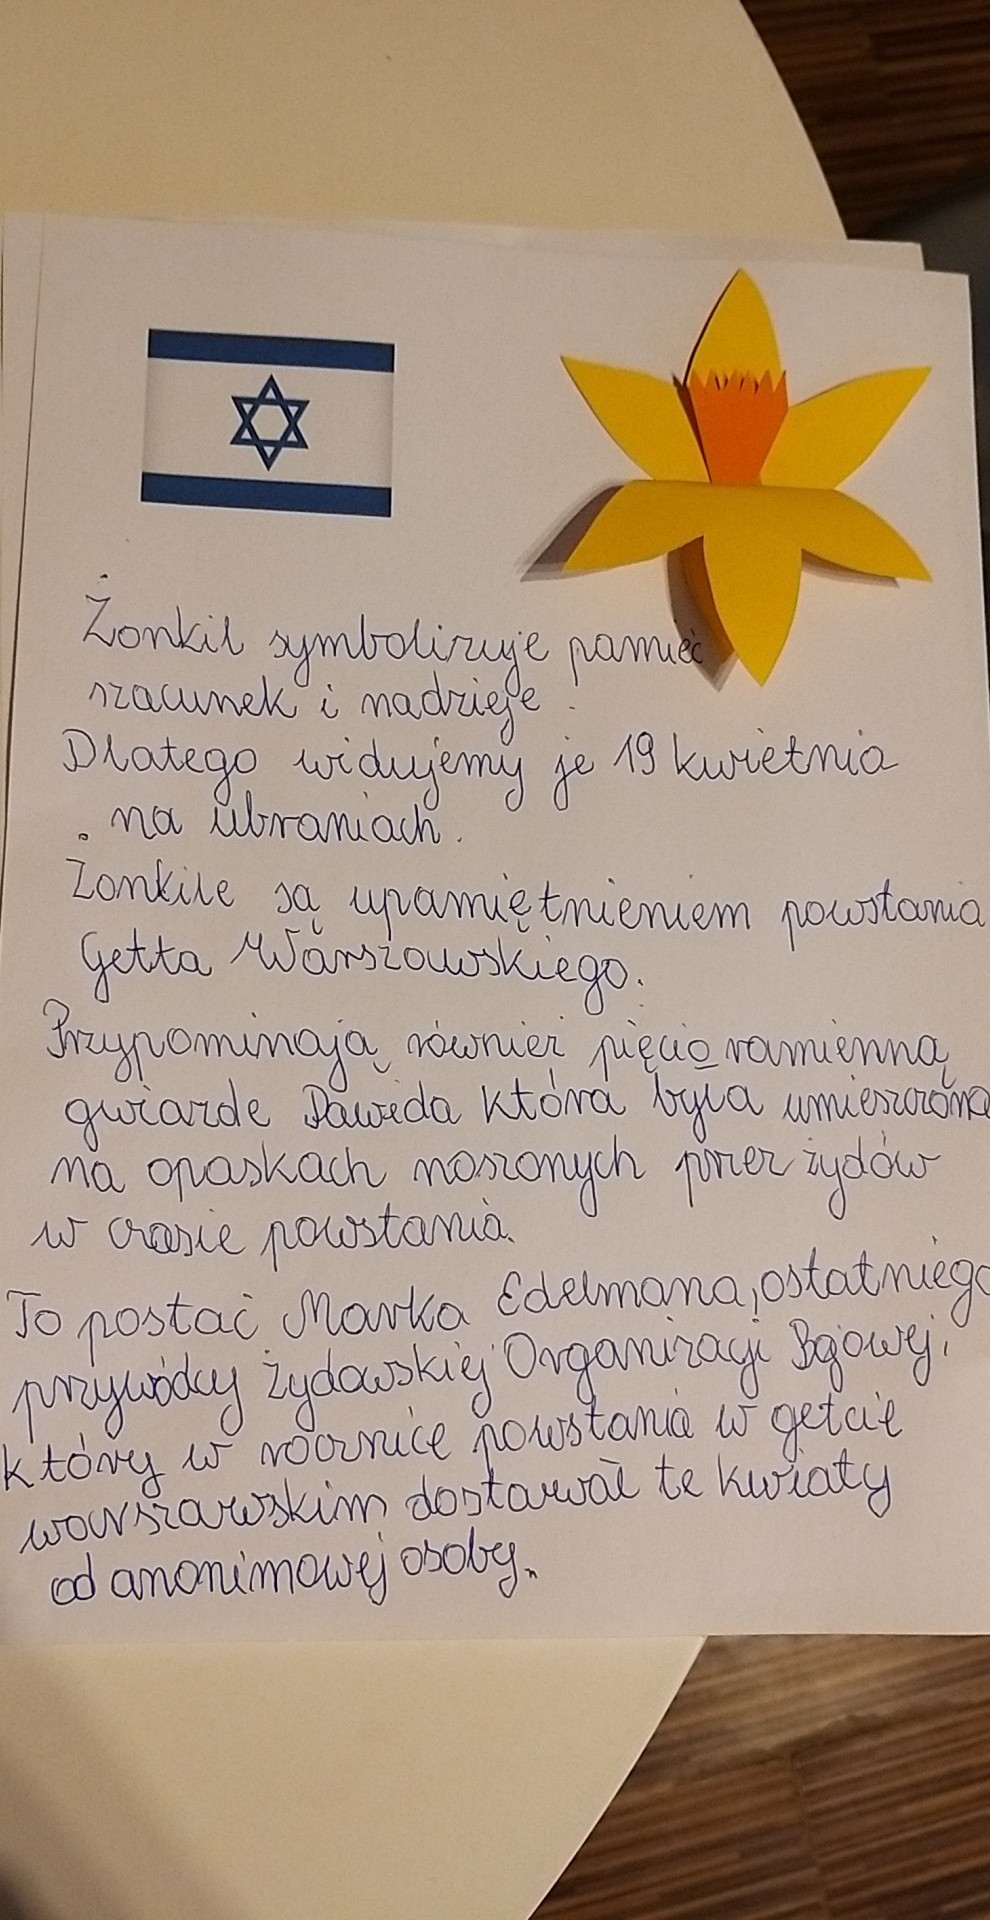 Żonkil symbolizuje pamięć
szacunek i nadzieje.
Dlatego widujemy je 19 kwietnia
na ubraniach.
Żonkile są upamiętnieniem powstania
Getta Warszawskiego.
Przypominają również pięcio ramienną
gwiazde Dawida która była umieszczona
na opaskach noszonych przez żydów
w czasie powstania.
To postać Marka Edelmana, ostatniego
przywódcy Żydowskiej Organizacji Bojowej,
który w rocznice powstania w getcie
warszawskim dostawał te kwiaty
od anonimowej osoby.